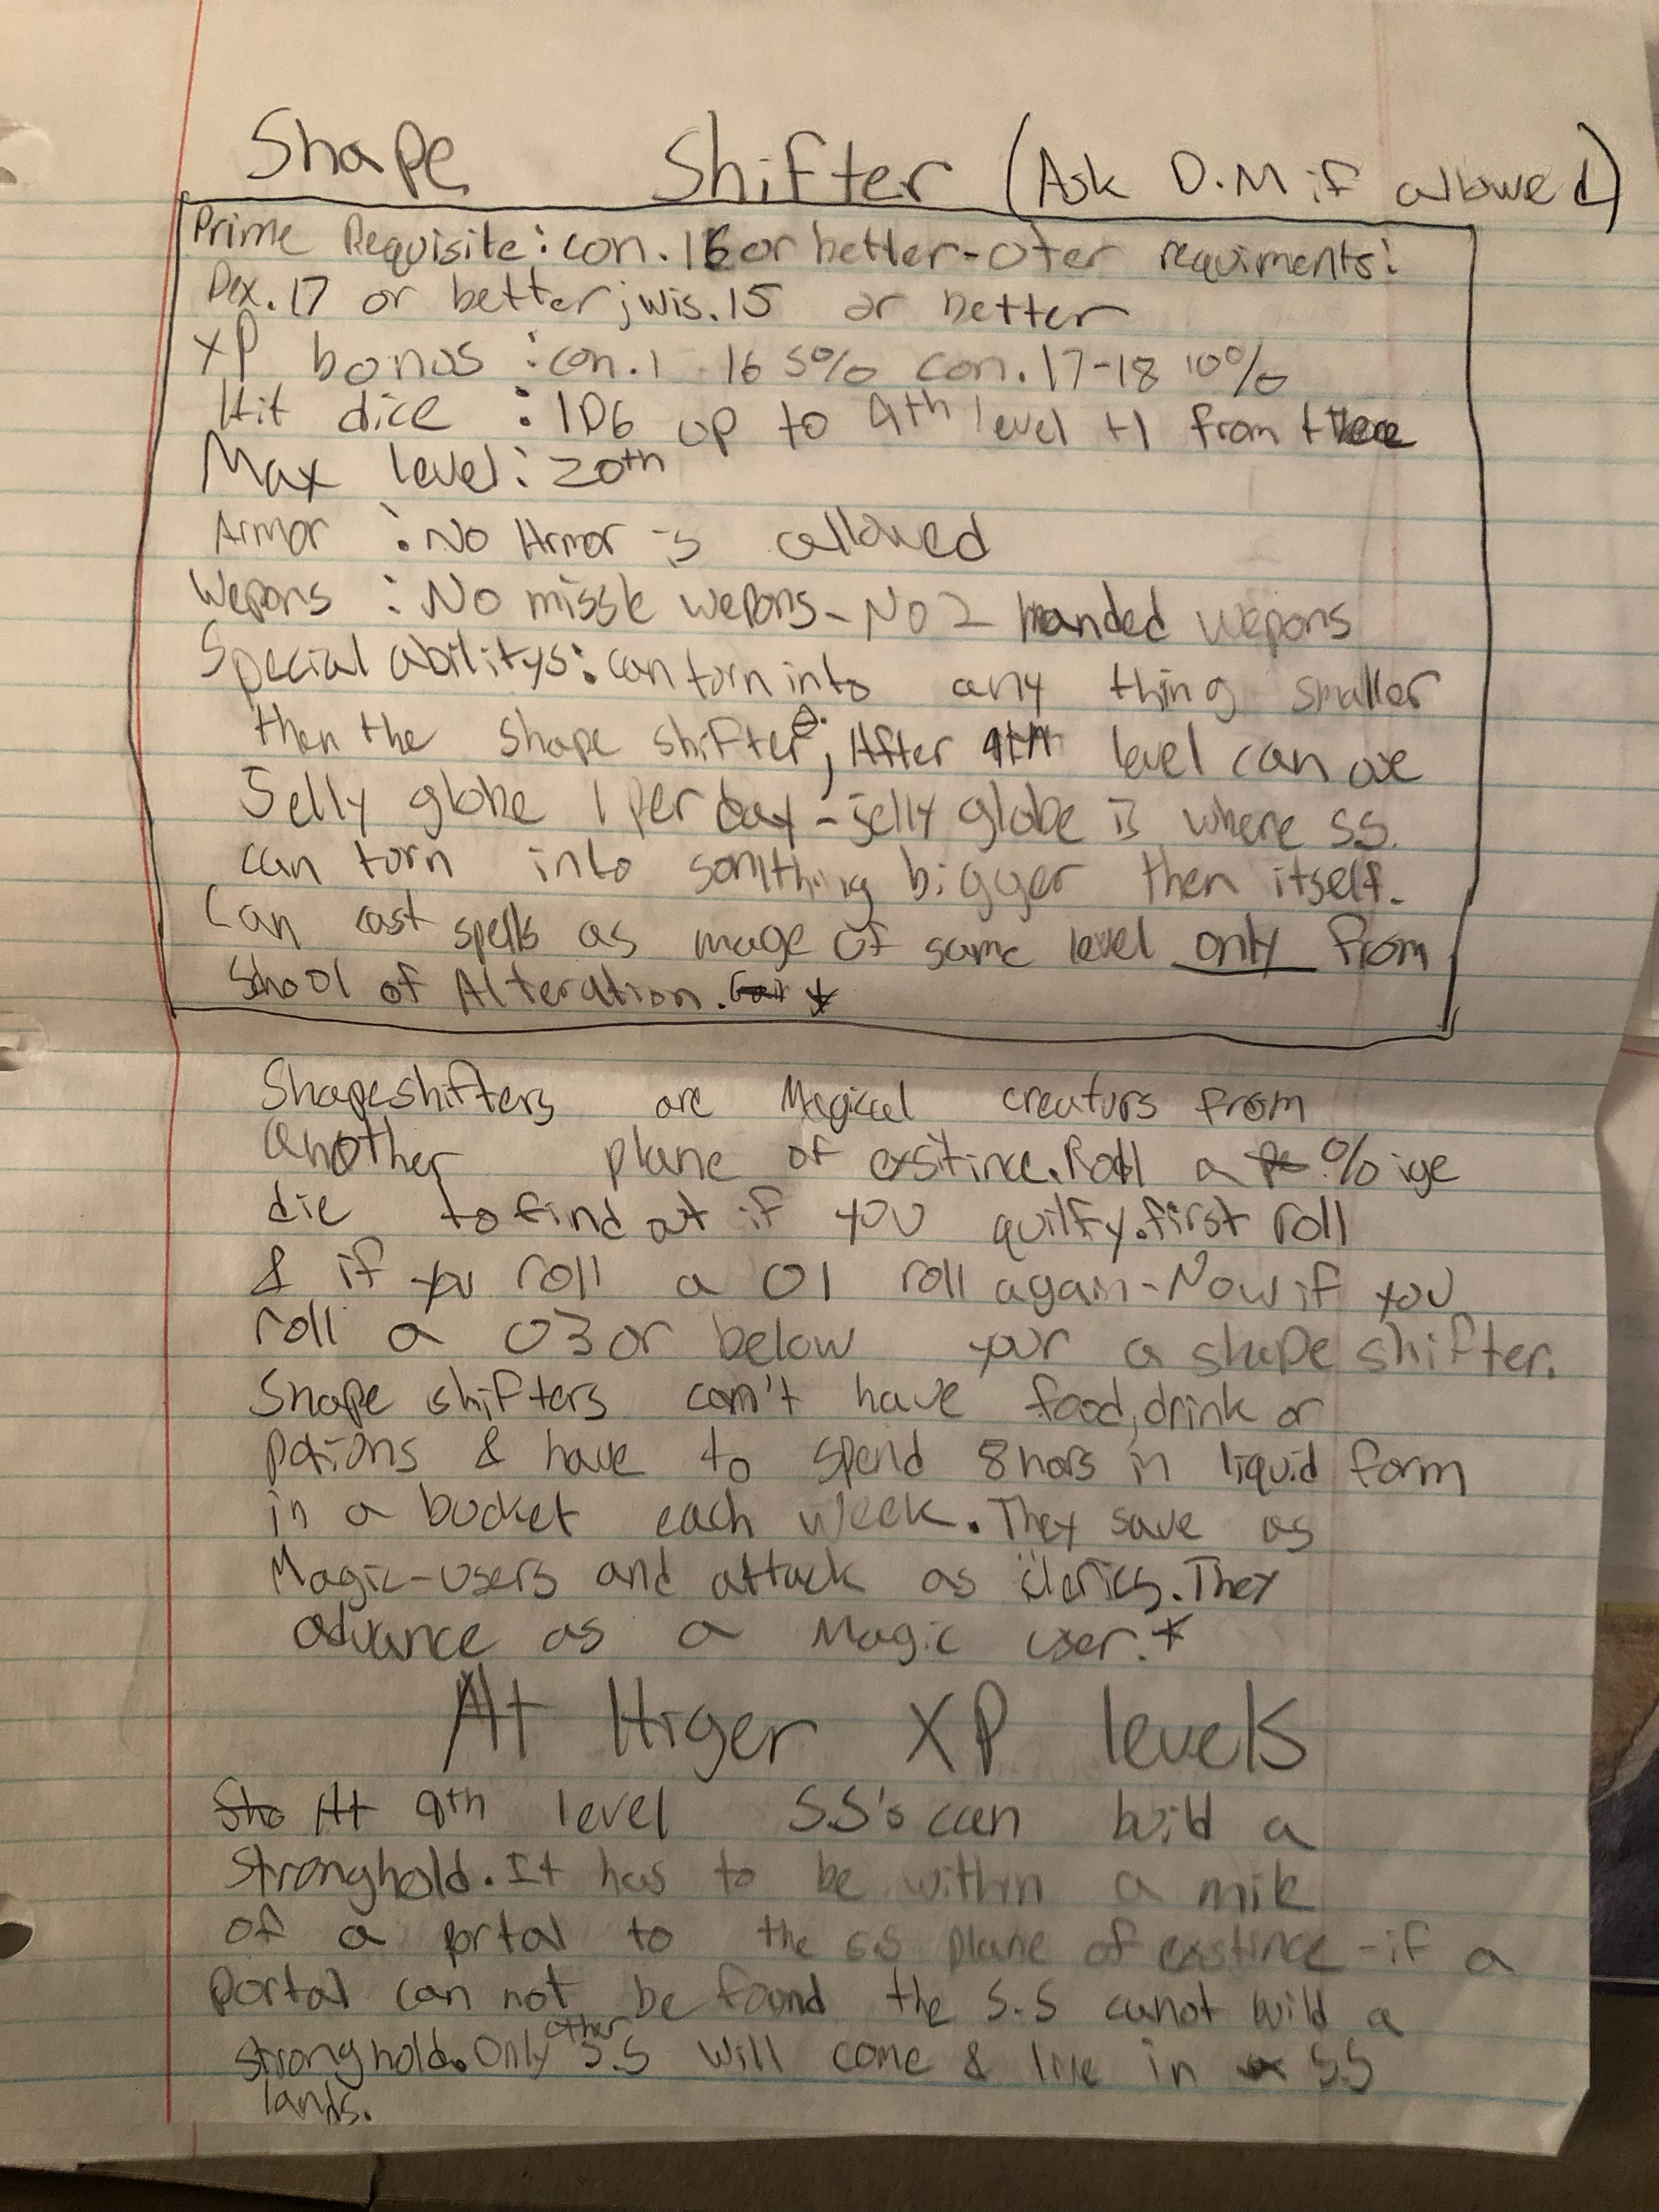 Shape Shifter (Ask D.M if allowed)
Prime Requisite: con. 16 or better - oter requiments:
Dex. 17 or better; wis. 15 or better
XP bonus : con. 16 5% con. 17-18 10%
Hit dice : 1D6 up to 9th level +1 from there
Max level: 20th
Armor : No Armor is allowed
Wepons : No missle wepons - No 2 handed wepons
Special abilitys: can turn into any thing smaller
then the shape shifter; After 9th level can use
Jelly globe 1 per day - jelly globe is where S.S.
can turn into somthing bigger then itself.
Can cast spells as mage of same level only from
School of Alteration. *
Shapeshifters are Magical creaturs from
another plane of exsitince. Roll a %ige
die to find out if you quilfy. first roll
& if you roll a 01 roll again - Now if you
roll a 03 or below your a shape shifter.
Shape shifters can't have food, drink or
potions & have to spend 8 hors in liquid form
in a bucket each week. They save as
Magic-users and attack as clerics. They
advance as a Magic user. *
At Higer XP levels
At 9th level S.S's can build a
stronghold. It has to be within a mile
of a portal to the S.S plane of existince - if a
portal can not be found the S.S cannot build a
stronghold. Only other S.S will come & live in S.S
lands.